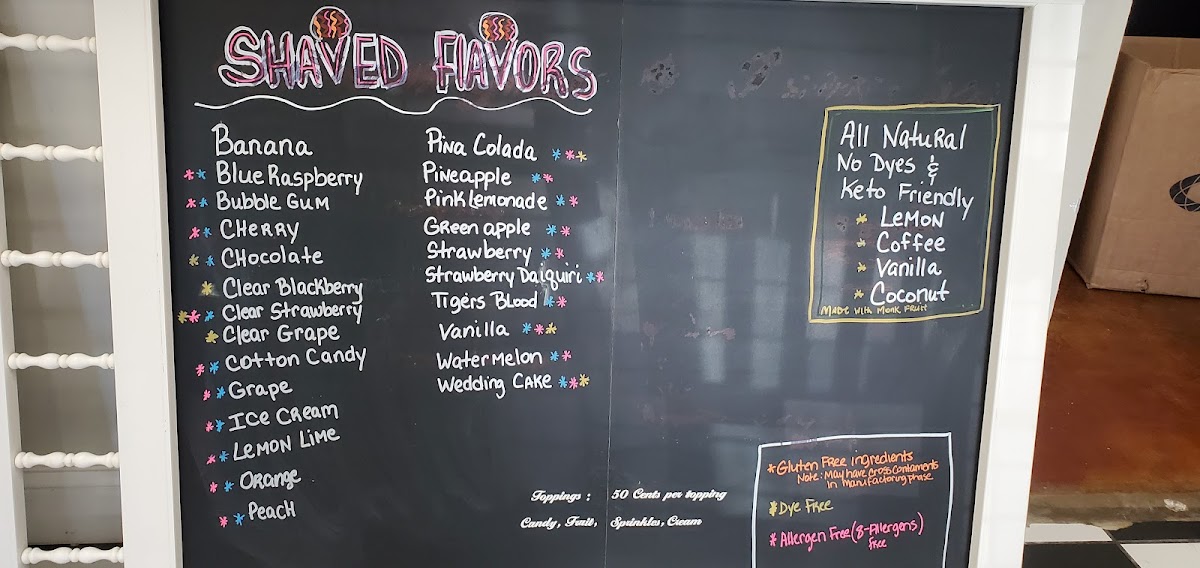 SHAVED FLAVORS
Banana
** Blue Raspberry
** Bubble Gum
** CHERRY
** CHocolate
* Clear Blackberry
*** Clear Strawberry
* Clear Grape
** Cotton Candy
** Grape
** ICE CReam
** LEMON LIME
** ORange
** PeacH
Pina Colada ***
Pineapple **
Pink Lemonade **
Green apple **
Strawberry **
Strawberry Daiquiri **
Tigers Blood **
Vanilla ***
WaterMelon **
Wedding Cake ***
All Natural
No Dyes &
Keto Friendly
* LeMoN
* Coffee
* Vanilla
* Coconut
Made with Monk Fruit
Toppings : 50 Cents per topping
Candy, Fruit, Sprinkles, Cream
*Gluten FRee ingredients
Note: May have cross contaments
in Manufactoring phase
*Dye FRee
*Allergen Free (8-Allergens)
free